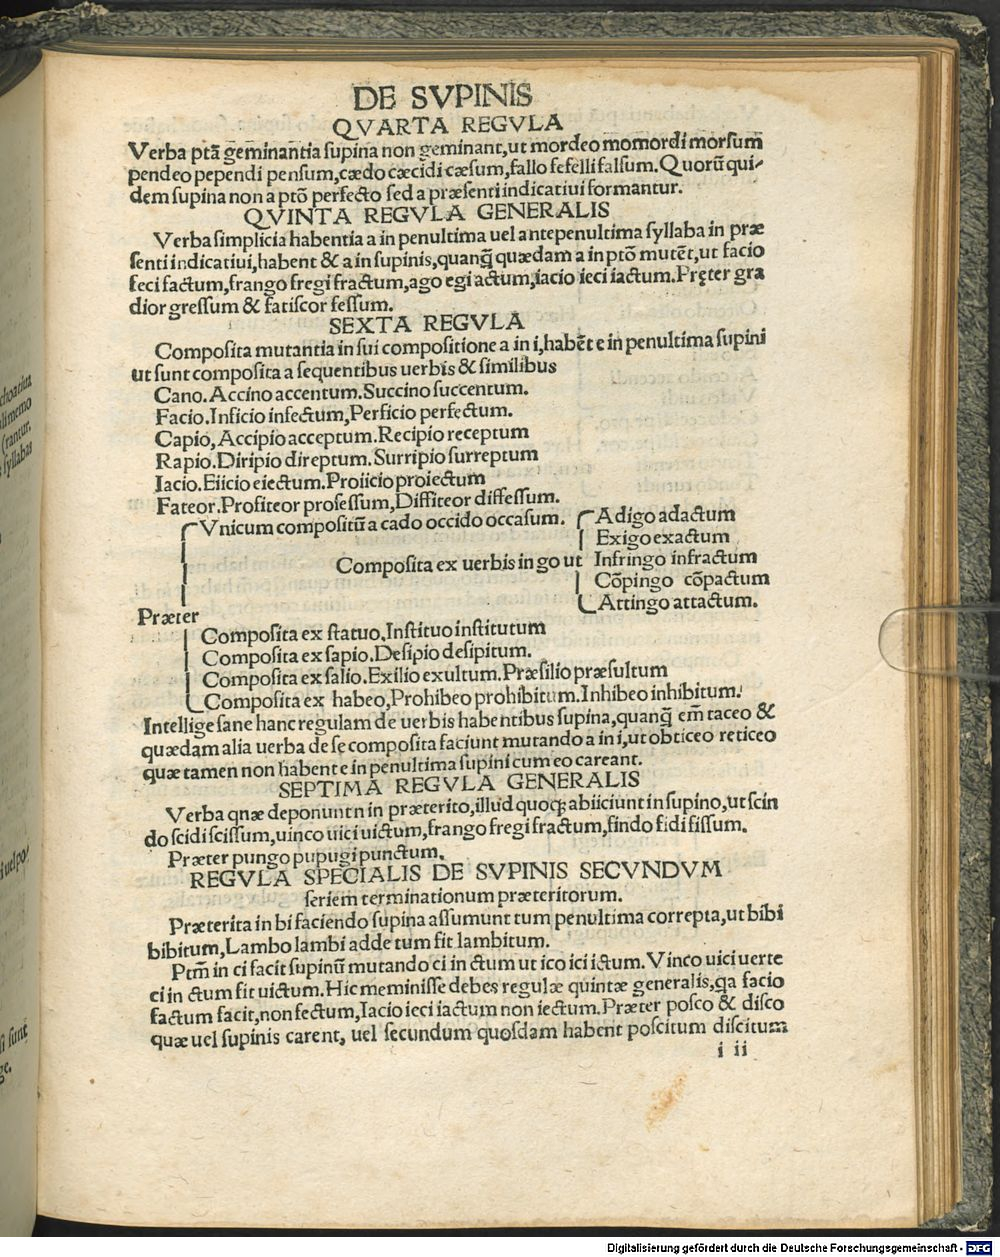 DE SVPINIS
QVARTA REGVLA
Verba ptā geminantia supina non geminant,ut mordeo momordi morsum
pendeo pependi pensum,cædo cæcidi cæsum,fallo fefelli falsum.Quorū qui-
dem supina non a ptō perfecto sed a præsenti indicatiui formantur.
QVINTA REGVLA GENERALIS
Verba simplicia habentia a in penultima uel antepenultima syllaba in præ
senti indicatiui,habent & a in supinis,quanq̄ quædam a in ptō mutēt,ut facio
feci factum,frango fregi fractum,ago egi actum,iacio ieci iactum.Pręter gra
dior gressum & fatiscor fessum.
SEXTA REGVLA
Composita mutantia in sui compositione a in i,habēt e in penultima supini
ut sunt composita a sequentibus uerbis & similibus
Cano.Accino accentum.Succino succentum.
Facio.Inficio infectum,Perficio perfectum.
Capio,Accipio acceptum.Recipio receptum
Rapio.Diripio direptum.Surripio surreptum
Iacio.Eiicio eiectum.Proiicio proiectum
Fateor.Profiteor professum,Diffiteor diffessum.
Vnicum compositū a cado occido occasum.
Adigo adactum
Exigo exactum
Composita ex uerbis in go ut Infringo infractum
Cōpingo cōpactum
Attingo attactum.
Præter
Composita ex statuo,Instituo institutum
Composita ex sapio.Desipio desipitum.
Composita ex salio.Exilio exultum.Præsilio præsultum
Composita ex habeo,Prohibeo prohibitum.Inhibeo inhibitum.
Intellige sane hanc regulam de uerbis habentibus supina,quanq̄ em̄ taceo &
quædam alia uerba de se composita faciunt mutando a in i,ut obticeo reticeo
quæ tamen non habent e in penultima supini cum eo careant.
SEPTIMA REGVLA GENERALIS
Verba qnæ deponunt n in præterito,illud quoq; abiiciunt in supino,ut scin
do scidi scissum,uinco uici uictum,frango fregi fractum,findo fidi fissum.
Præter pungo pupugi punctum.
REGVLA SPECIALIS DE SVPINIS SECVNDVM
seriem terminationum præteritorum.
Præterita in bi faciendo supina assumunt tum penultima correpta,ut bibi
bibitum,Lambo lambi adde tum fit lambitum.
Ptm̄ in ci facit supinū mutando ci in ctum ut ico ici ictum.Vinco uici uerte
ci in ctum fit uictum.Hic meminisse debes regulæ quintæ generalis,qa facio
factum facit,non fectum,Iacio ieci iactum non iectum.Præter posco & disco
quæ uel supinis carent, uel secundum quosdam habent poscitum discitum
i ii
Digitalisierung gefördert durch die Deutsche Forschungsgemeinschaft - DFG